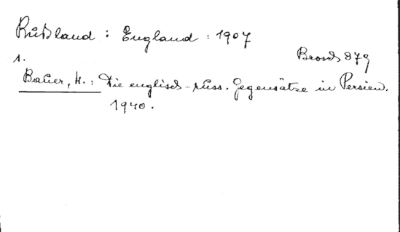 Rußland : England : 1907
Brosch 879
1.
Bauer, H.: Die englisch-russ. Gegensätze in Persien.
1940.